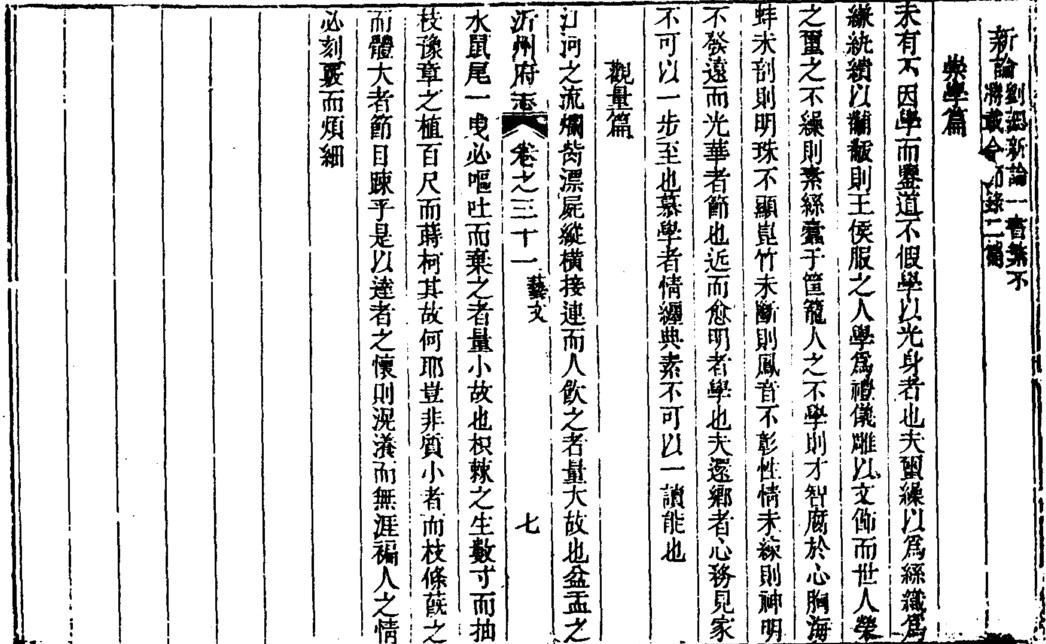 新論 劉勰新論一書業不
勝載今節錄二篇
崇學篇
未有不因學而鑒道不假學以光身者也夫蠒繰以為絲織為
縑紈繢以黼黻則王侯服之人學為禮儀雕以文飾而世人榮
之蠒之不繰則素絲蠹于筐籠人之不學則才智腐於心胸海
蚌未剖則明珠不顯崑竹未斷則鳳音不彰性情未綜則神明
不發遠而光華者節也近而愈明者學也夫還鄉者心務見家
不可以一步至也慕學者情纏典素不可以一讀能也
觀量篇
江河之流爛胔漂屍縱橫接連而人飲之者量大故也盆盂之
沂州府志 卷之三十一 藝文 七
水鼠尾一曵必嘔吐而棄之者量小故也枳棘之生數寸而抽
枝豫章之植百尺而蒔柯其故何耶豈非質小者而枝條蓛之
而體大者節目踈乎是以達者之懷則滉瀁而無涯褊人之情
必刻覈而煩細